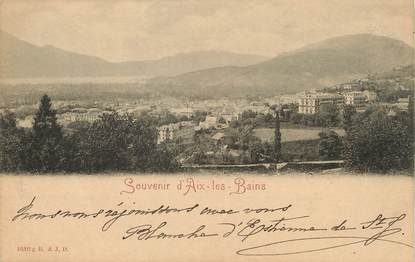 Souvenir d'Aix-les-Bains
Nous nous réjouissons avec vous
Blanche d'Estienne de St J.
J. D.